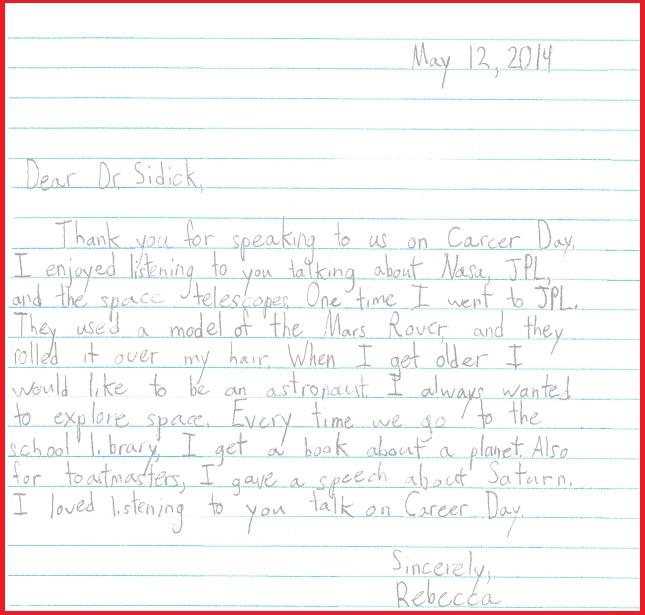 May 12, 2014
Dear Dr. Sidick,
Thank you for speaking to us on Career Day.
I enjoyed listening to you talking about Nasa, JPL,
and the space telescopes. One time I went to JPL.
They used a model of the Mars Rover, and they
rolled it over my hair. When I get older I
would like to be an astronaut. I always wanted
to explore space. Every time we go to the
school library, I get a book about a planet. Also
for toastmasters, I gave a speech about Saturn.
I loved listening to you talk on Career Day.
Sincerely,
Rebecca